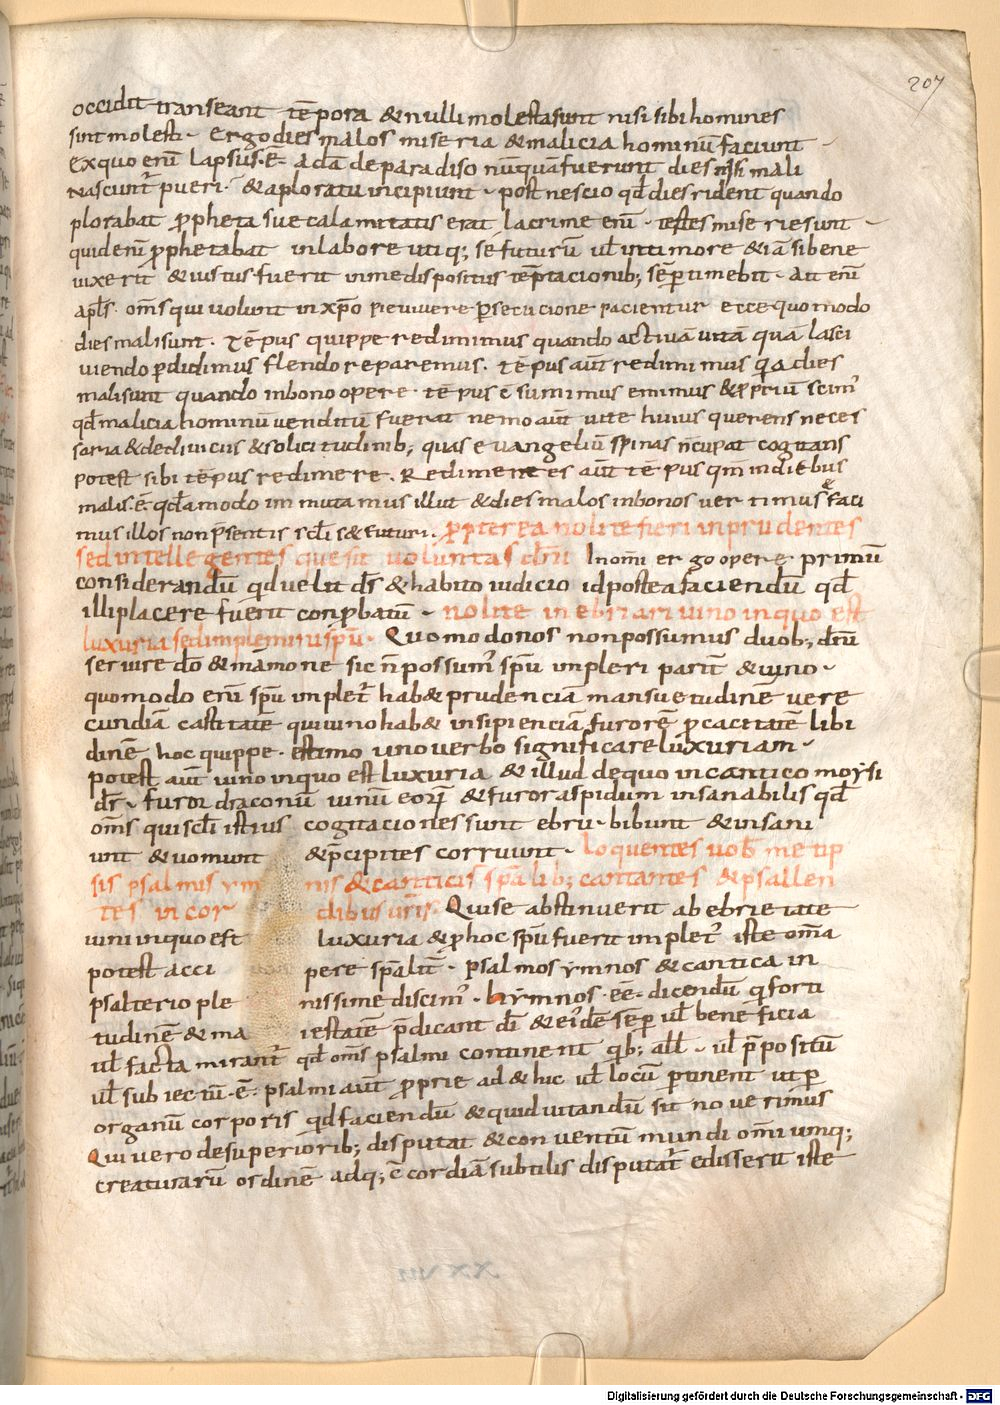 207
occidit transeant tēpora & nulli molesta sunt nisi sibi homines
sint molesti · Ergo dies malos miseria & malicia hominū faciunt
Ex quo enī lapsus · ē · adā de paradiso nūquā fuerunt dies nisi mali
Nascunt̄ pueri · & a ploratu incipiunt · post nescio qd̄ dies rident quando
plorabat ꝓpheta sue calamitatis erat lacrime enī · testes miserie sunt
quidenī ꝓphetabat in labore utiq; se futurū ul̄ in timore & iā si bene
uixerit & iustus fuerit in medis positus tēptacionib; sēꝑ timebit · Ait enī
apl̄s · om̄s qui uolunt in xp̄o pie uiuere ꝑsecucione pacientur ecce quomodo
dies mali sunt · Tēpus quippe redimimus quando actiuā uitā quā lasci
uiendo ꝑdidimus flendo reparemus · tēpus aut̄ redimimus quia dies
mali sunt quando in bono opere · tēpus c̄sumimus emimus & ꝓpriū
qd̄ malicia hominū uenditū fuerat nemo aut̄ uite huius querens neces
saria & de diuiciis & solicitudinib; quas euangeliū spinas n̄cupat cogitans
potest sibi tēpus redimere · Redimentes aut̄ tēpus qm̄ in diebus
malis · ē · qd̄amodo immutamus illut & dies malos in bonos uertimus & faci
mus illos non p̄sentis scl̄i s& futuri · ꝓpterea nolite fieri inprudentes
sed intellegentes que sit uoluntas dn̄i In om̄i ergo opere primū
considerandū qd̄ uelit dn̄s & habito iudicio id postea faciendū qd̄
illi placere fuerit conꝓbatū · nolite inebriari uino in quo est
luxuria sed implemini sp̄u · Quomodo nos non possumus duob; dn̄is
seruire dō & māmone sic n̄ possum᷒ sp̄u impleri parit̄ & uino ·
quomodo enī sp̄u implet̄ hab& prudenciā mansuetudinē uere
cundiā castitatē qui uino hab& insipienciā furorē ꝓcacitatē libi
dinē hoc quippe · estimo uno uerbo significare luxuriam ·
potest aut̄ uino in quo est luxuria & illud de quo in cantico moysi
dr̄ · furor draconū uinū eorū & furor aspidum insanabilis qd̄
om̄s qui scl̄i istius cogitaciones sunt ebrii · bibunt & insani
unt & uomunt & p̄cipites corruunt · loquentes uob̄ met ip
sis psalmis ym nis & canticis sp̄alib; cantantes & psallen
tes in cor dibus ur̄is · Qui se abstinuerit ab ebrietate
uini in quo est luxuria & ꝓ hoc sp̄u fuerit implet᷒ iste om̄a
potest acci pere sp̄alit̄ · psalmos ymnos & cantica in
psalterio ple nissime discim᷒ · hymnos · eē · dicendū qi forti
tudinē & ma iestatē p̄dicant dī & eiꝰdē sēꝑ ul̄ beneficia
ul̄ facta mirant̄ qd̄ om̄s psalmi continent qib; all̄ · ul̄ p̄positū
ul̄ subiectū · ē · psalmi aut̄ ꝓprie ad &hic ul̄ locū ꝑtinent ut ꝑ
organū corporis qd̄ faciendū & quid uitandū sit nouerimus
Qui uero de superiorib; disputat & conuentum mundi om̄iumq;
creaturarū ordinē · adq; c̄cordiā subtilis disputat᷒ edisserit iste
XXVIII
Digitalisierung gefördert durch die Deutsche Forschungsgemeinschaft - DFG